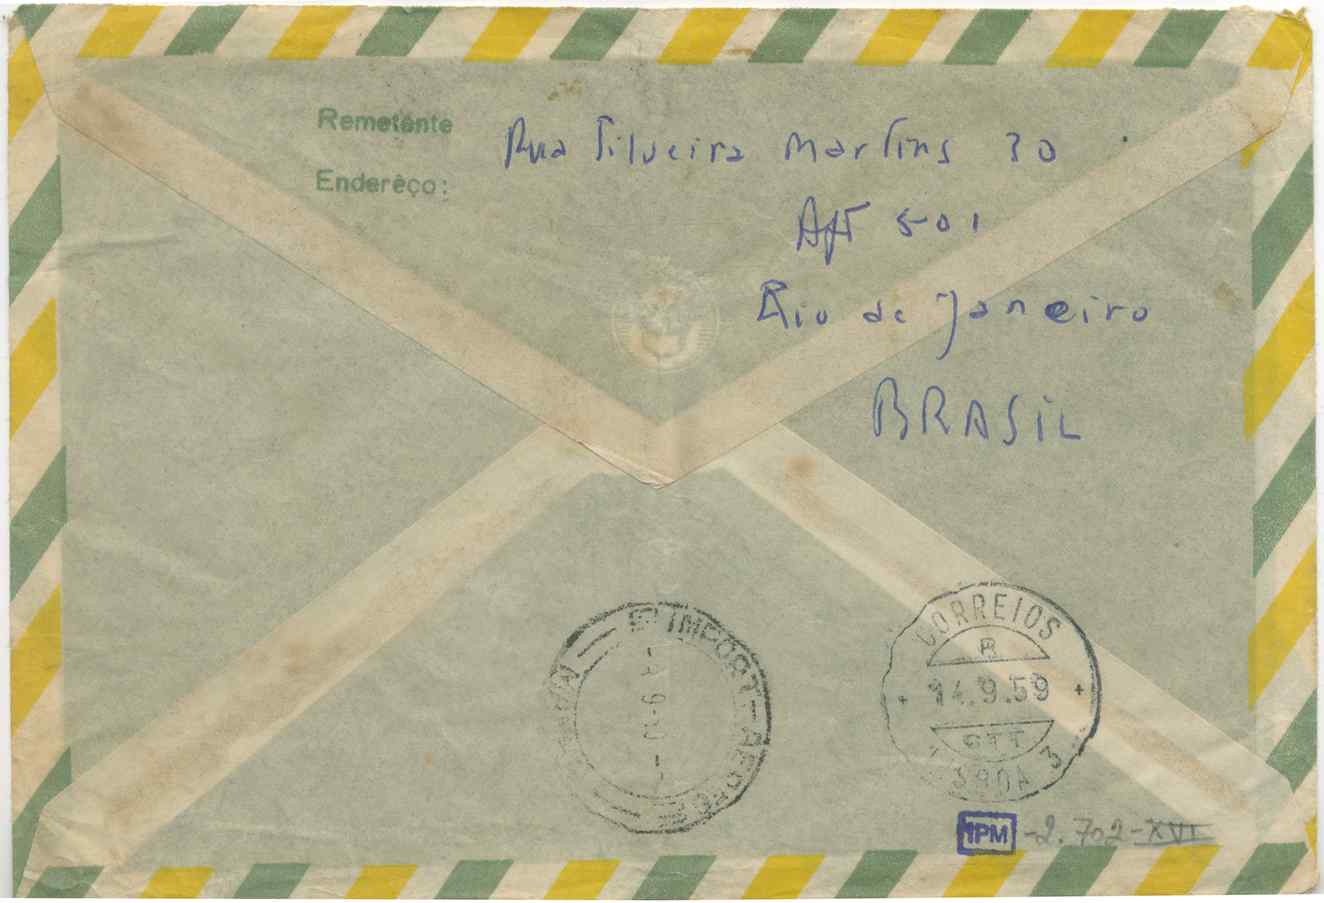 Remetênte
Enderêço:
Rua Silveira Martins 30
Apt 501
Rio de Janeiro
BRASIL
IMPORT-AEREO
CORREIOS
R
14.9.59
CTT
3
1PM
-2.702-XVI